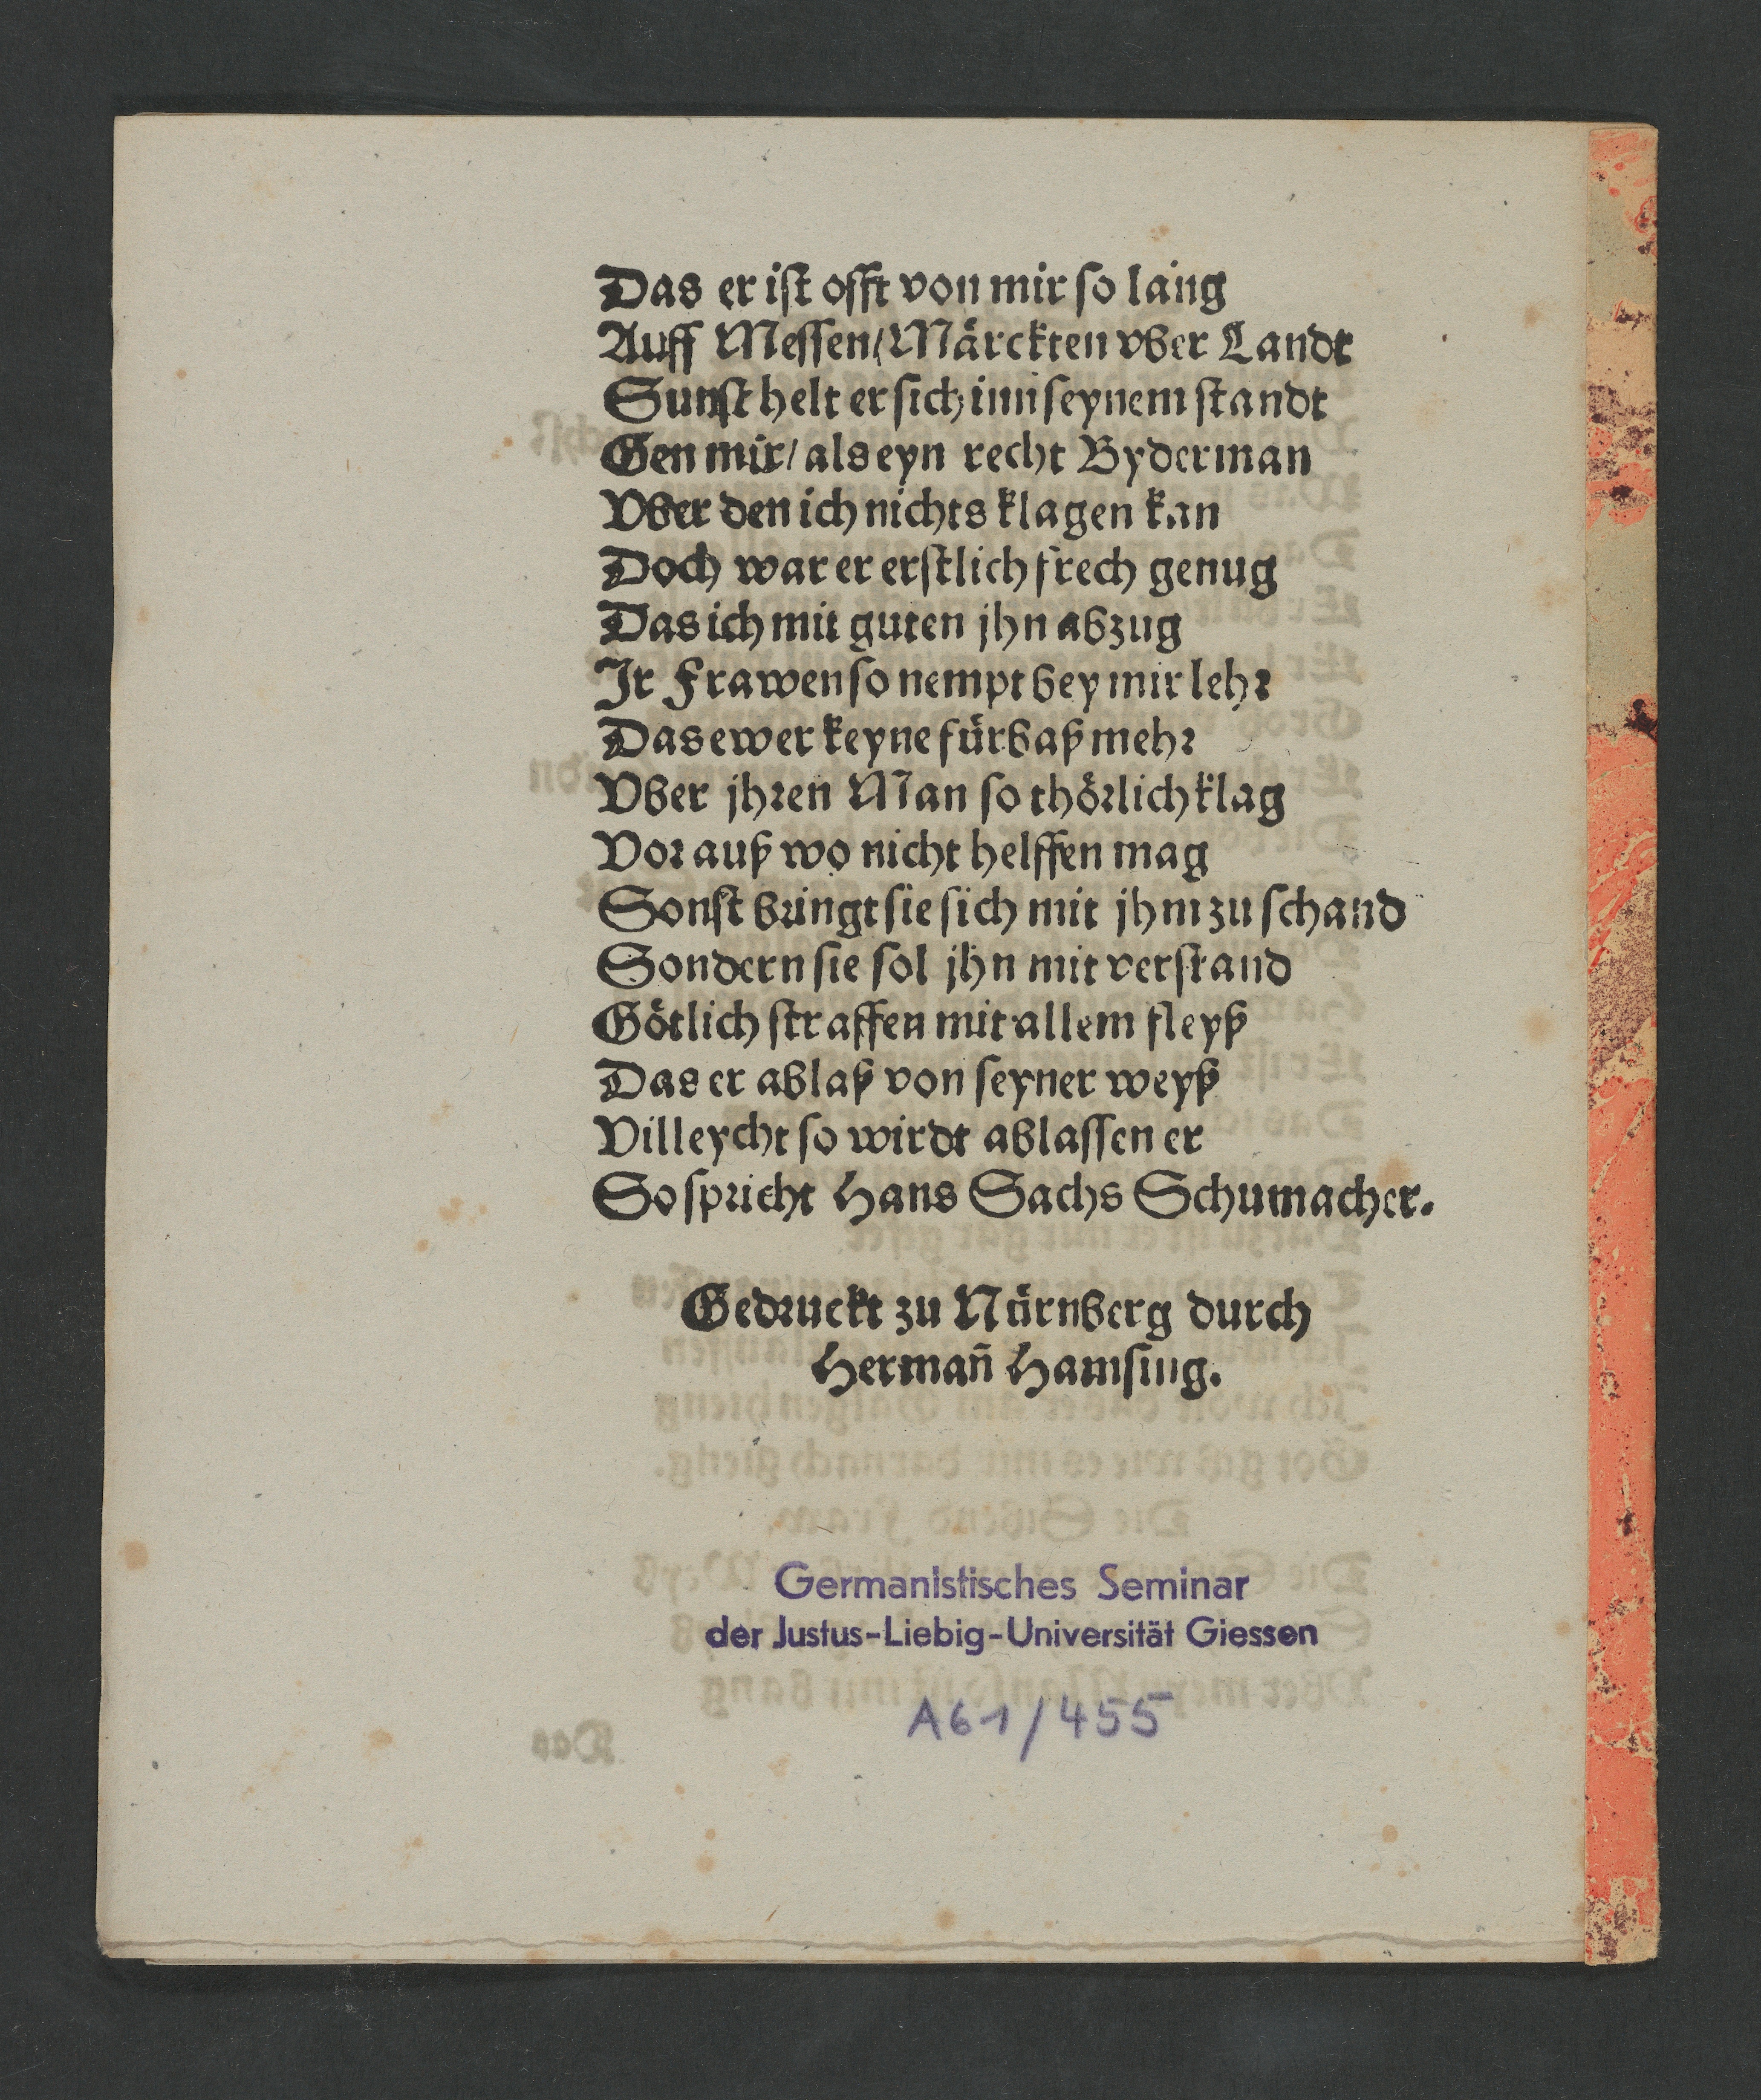 Das er ist offt von mir so lang
Auff Messen/ Märckten vber Landt
Sunst helt er sich inn seynem standt
Gen mir/ als eyn recht Byderman
Vber den ich nichts klagen kan
Doch war er erstlich frech genug
Das ich mit guten jhn abzug
Ir Frawen so nempt bey mir lehr
Das ewer keyne fürbaß mehr
Vber jhren Man so thörlich klag
Vorauß wo nicht helffen mag
Sonst bringt sie sich mit jhm zu schand
Sondern sie sol jhn mit verstand
Götlich straffen mit allem fleyß
Das er ablaß von seyner weyß
Villeycht so wirdt ablassen er
So spricht Hans Sachs Schumacher.
Gedruckt zu Nürnberg durch
Hermañ Hamsing.
Germanistisches Seminar
der Justus-Liebig-Universität Giessen
A61/455